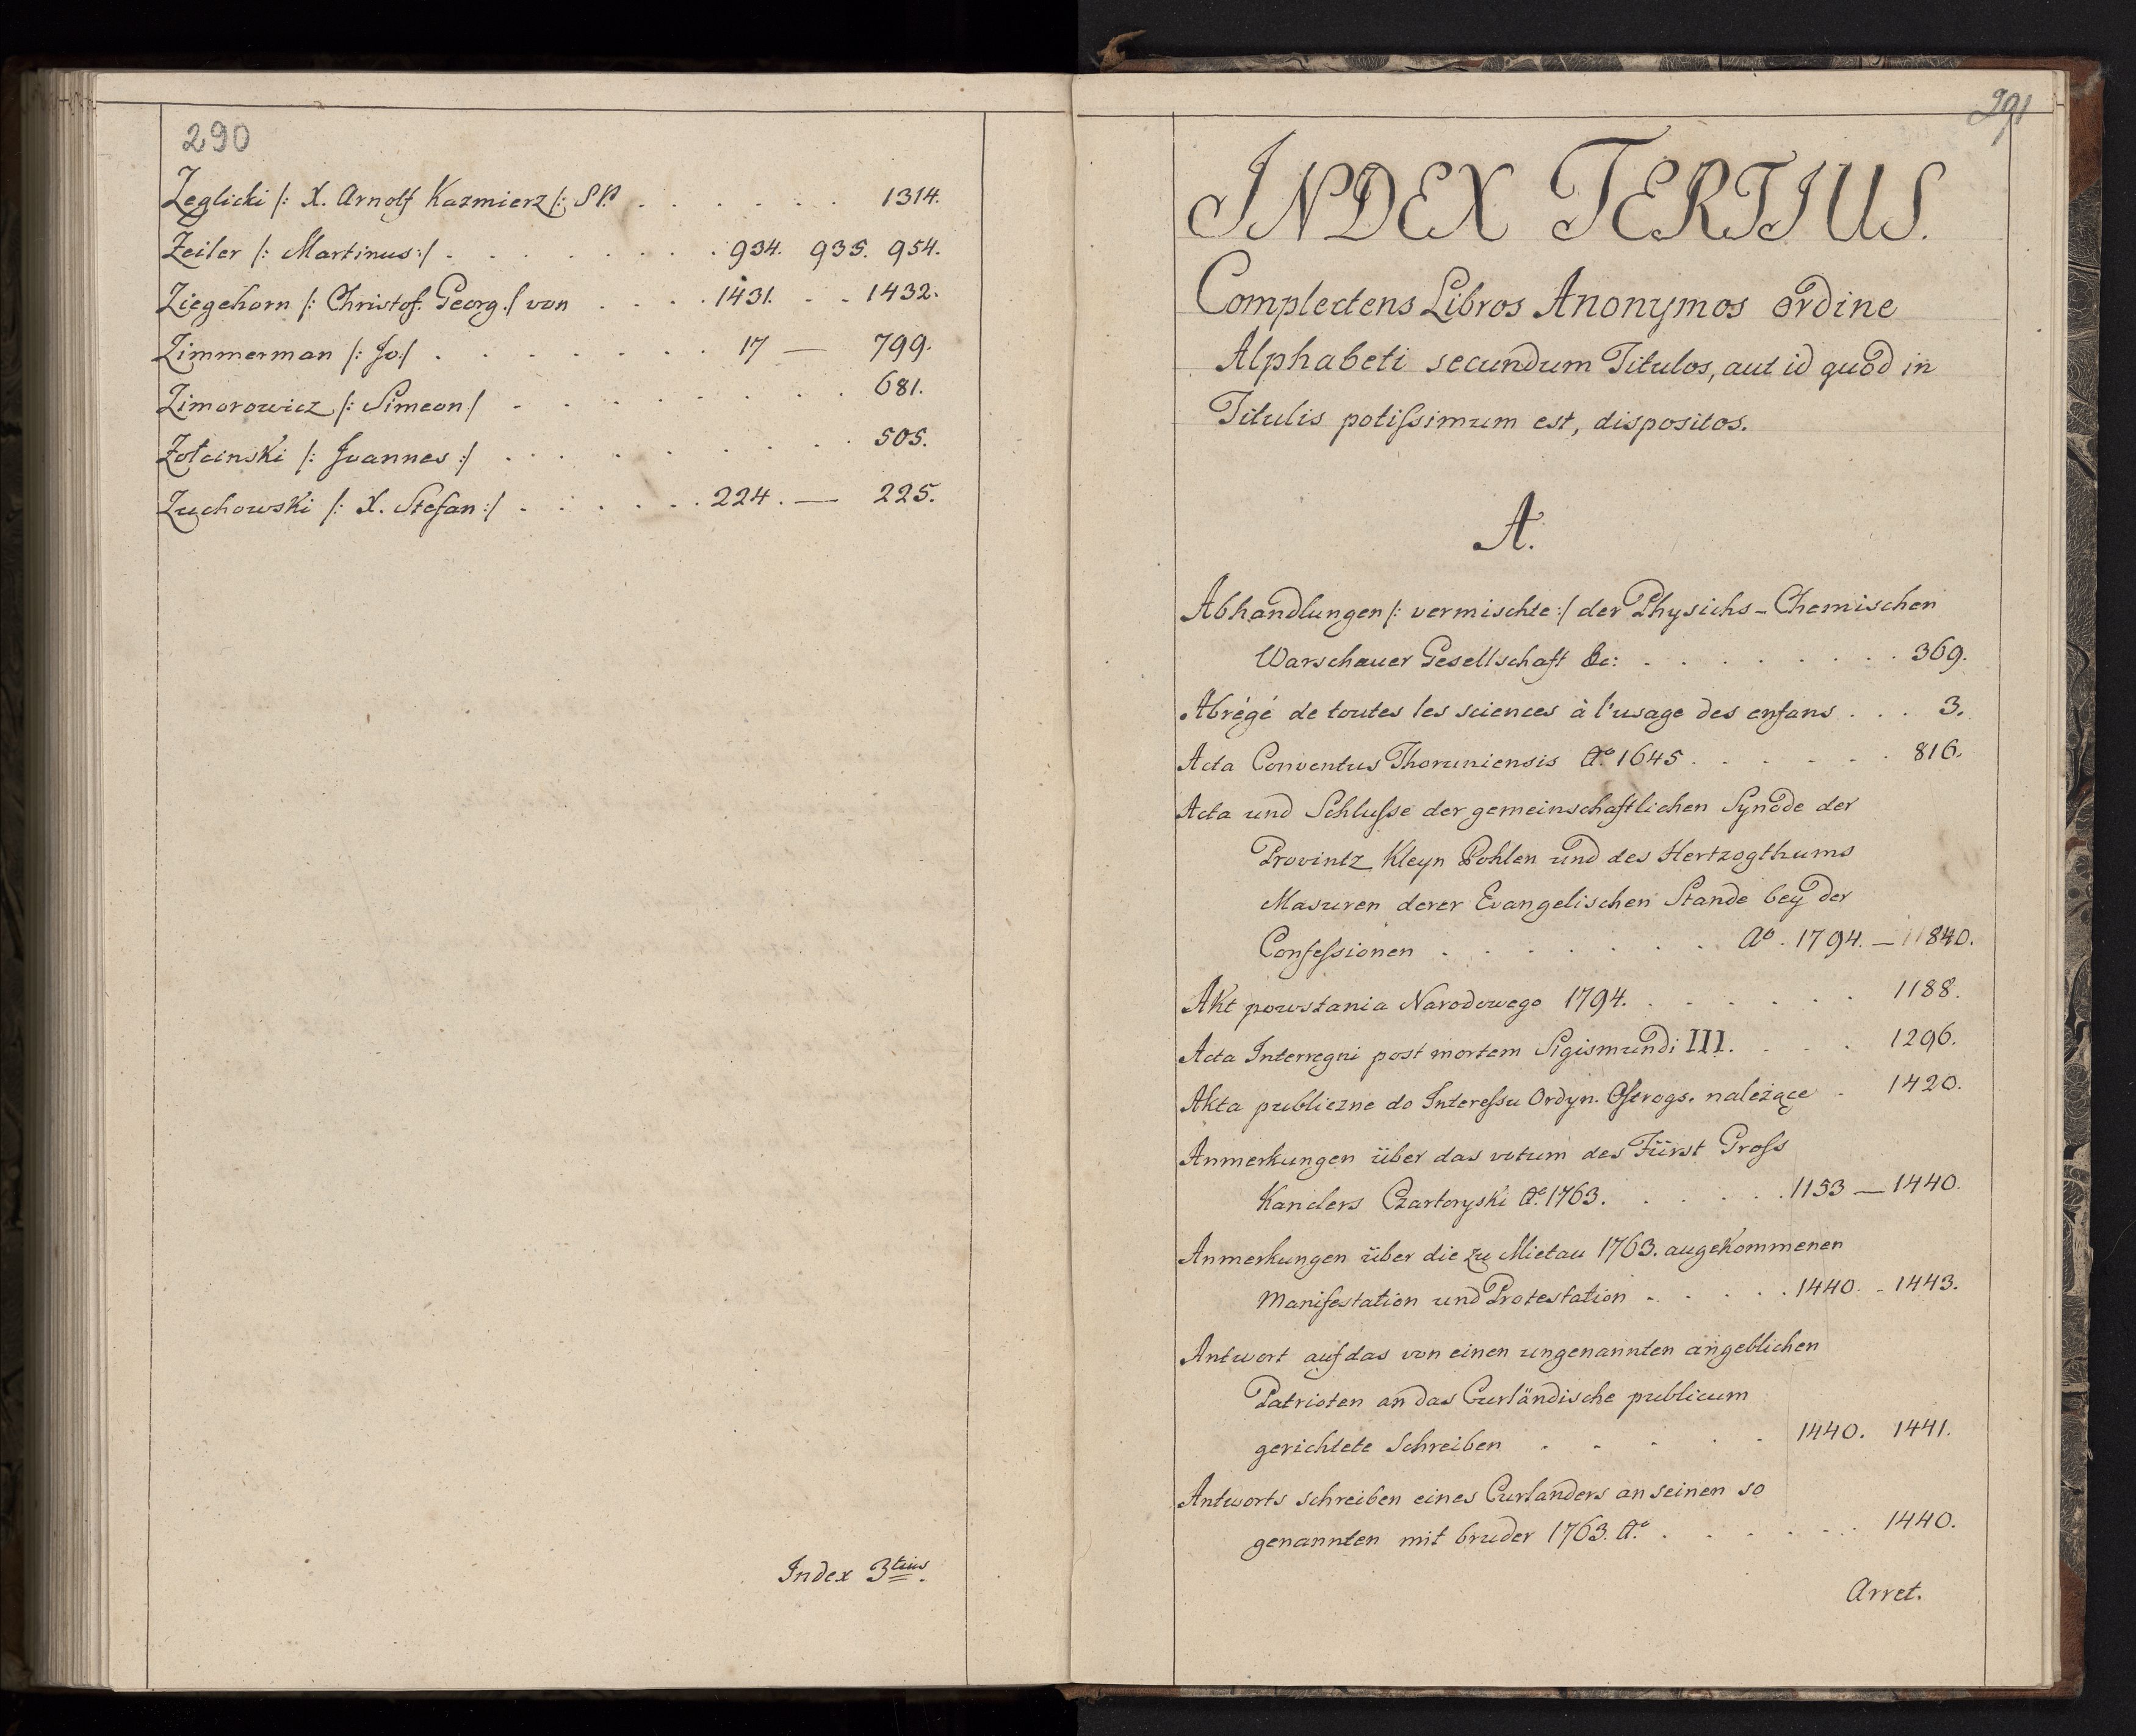 290
Zeglicki /: X. Arnolf Kazmierz /: S P. . . . . . . 1314.
Zeiler /: Martinus :/ . . . . . . . . 934. 935. 954.
Ziegehorn /: Christof. Georg. / von . . . . 1431. . . 1432.
Zimmerman /: Jo:/ . . . . . . . . 17 — 799.
Zimorowicz /: Simeon / . . . . . . . . 681.
Zołcinski /: Joannes :/ . . . . . . . . 505.
Zuchowski /: X. Stefan :/ . . . . . . 224. — 225.
Index 3tius.
291
INDEX TERTIUS.
Complectens Libros Anonymos ordine
Alphabeti secundum Titulos, aut id quod in
Titulis potiſsimum est, dispositos.
A.
Abhandlungen /: vermischte :/ der Physichs-Chemischen
Warschauer Gesellschaft &c: . . . . . . . 369.
Abrégé de toutes les sciences à l'usage des enfans . . . 3.
Acta Conventus Thoruniensis Aº 1645 . . . . . . 816.
Acta und Schluſse der gemeinschaftlichen Synode der
Provintz Kleyn Pohlen und des Hertzogthums
Masuren derer Evangelischen Stande bey der
Confeſsionen . . . . . . . Aº. 1794. — 840.
Akt powstania Narodowego 1794. . . . . . . 1188.
Acta Interregni post mortem Sigismundi III. . . . 1296.
Akta publiczne do Intereſsu Ordyn. Oſtrogs. należące . 1420.
Anmerkungen über das votum des Fürst Groſs
Kanclers Czartoryski Aº. 1763. . . . . . 1153 — 1440.
Anmerkungen über die zu Mietau 1763. angekommenen
Manifestation und Protestation . . . . . 1440. - 1443.
Antwort auf das von einen ungenannten angeblichen
Patrioten an das Curländische publicum
gerichtete Schreiben . . . . . 1440. 1441.
Antworts schreiben eines Curlanders an seinen so
genannten mit bruder 1763. Aº. . . . . . . 1440.
Arret.